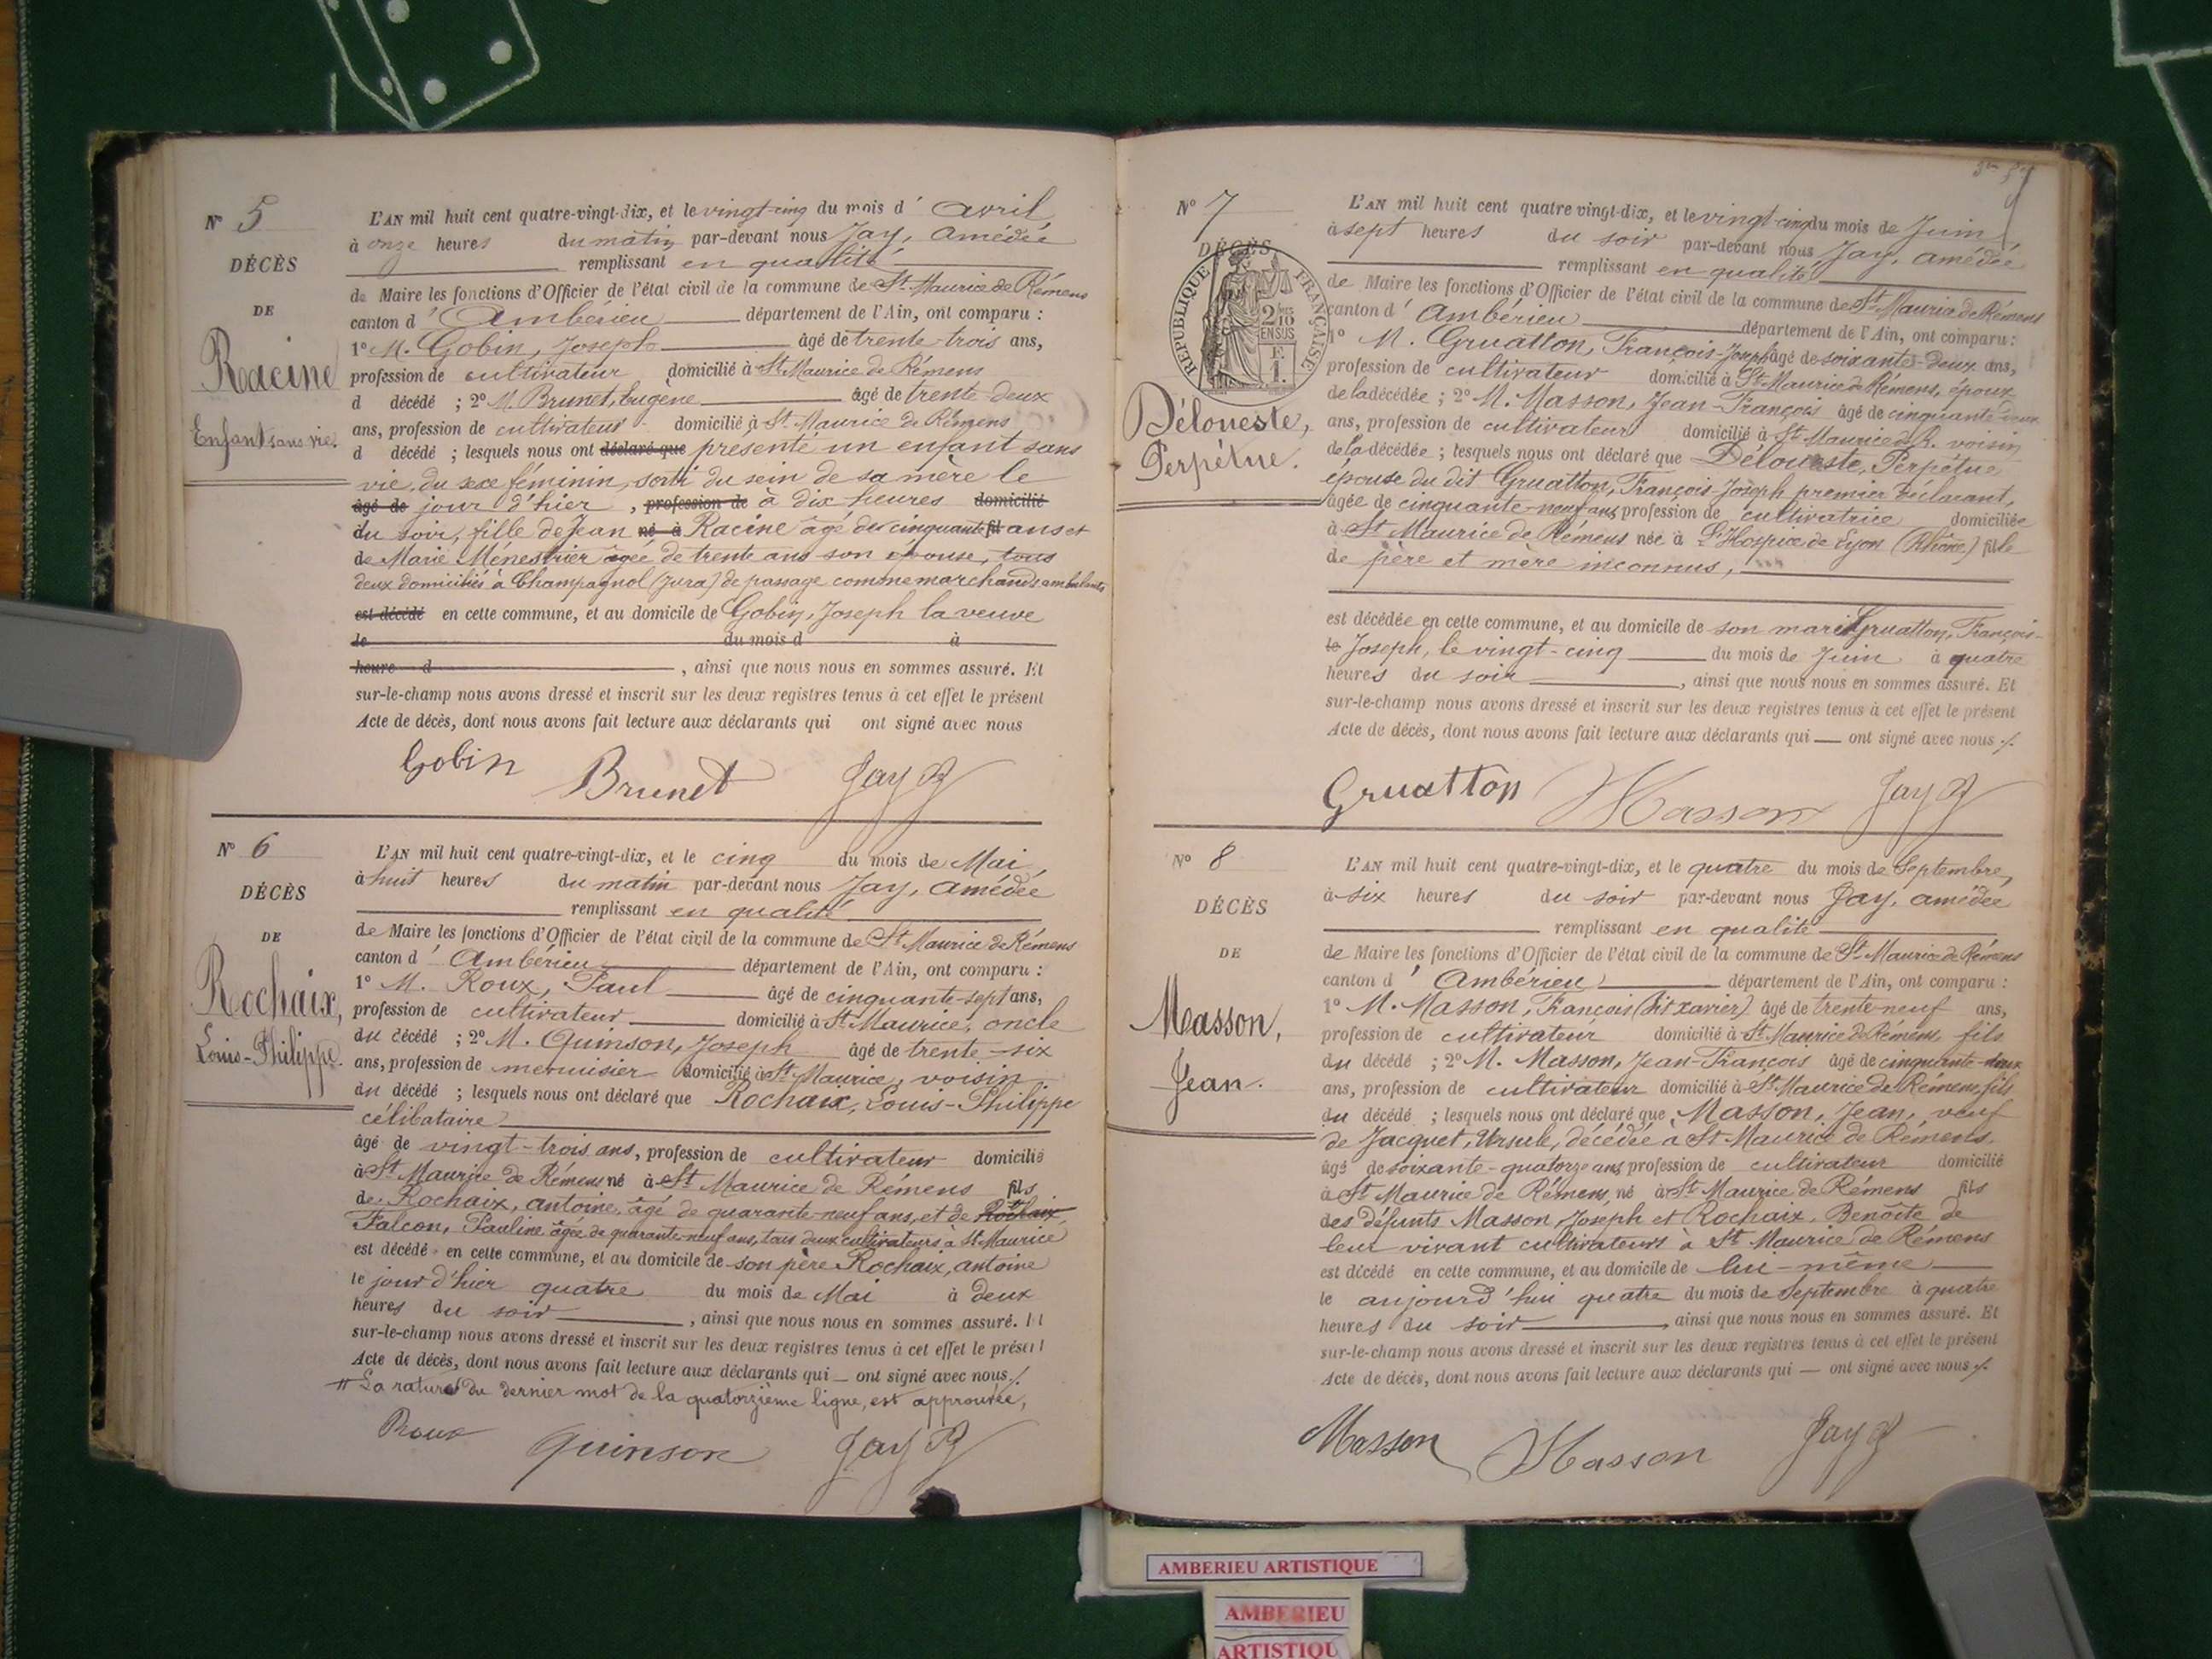 N° 5
DÉCÈS
DE
Racine
Enfant sans vie.
L'AN mil huit cent quatre-vingt-dix, et le vingt-cinq du mois d' Avril,
à onze heures du matin par-devant nous Jay, Amédée
remplissant en qualité
de Maire les fonctions d'Officier de l'état civil de la commune de St Maurice de Rémens
canton d' Ambérieu département de l'Ain, ont comparu :
1° M. Gobin, Joseph âgé de trente-trois ans,
profession de cultivateur domicilié à St Maurice de Rémens
d décédé ; 2° M. Brunet, Eugène âgé de trente-deux
ans, profession de cultivateur domicilié à St Maurice de Rémens
d décédé ; lesquels nous ont déclaré que présenté un enfant sans
vie, du sexe féminin, sorti du sein de sa mère le
âgé de jour d'hier , profession de à dix heures domicilié
du soir, fille de Jean né à Racine âgé de cinquante fil ans et
de Marie Ménestrier âgée de trente ans son épouse, tous
deux domiciliés à Champagnol (Jura) de passage comme marchands ambulants
est décédé en cette commune, et au domicile de Gobin, Joseph la veuve
le du mois d à
heure d , ainsi que nous nous en sommes assuré. Et
sur-le-champ nous avons dressé et inscrit sur les deux registres tenus à cet effet le présent
Acte de décès, dont nous avons fait lecture aux déclarants qui ont signé avec nous
Gobin Brunet Jay A
N° 6
DÉCÈS
DE
Rochaix,
Louis-Philippe.
L'AN mil huit cent quatre-vingt-dix, et le cinq du mois de Mai,
à huit heures du matin par-devant nous Jay, Amédée
remplissant en qualité
de Maire les fonctions d'Officier de l'état civil de la commune de St Maurice de Rémens
canton d' Ambérieu département de l'Ain, ont comparu :
1° M. Roux, Paul âgé de cinquante-sept ans,
profession de cultivateur domicilié à St Maurice, oncle
du décédé ; 2° M. Quinson, Joseph âgé de trente-six
ans, profession de menuisier domicilié à St Maurice, voisin
du décédé ; lesquels nous ont déclaré que Rochaix, Louis-Philippe
célibataire
âgé de vingt-trois ans, profession de cultivateur domicilié
à St Maurice de Rémens né à St Maurice de Rémens fils
de Rochaix, Antoine, âgé de quarante-neuf ans, et de Rochaix
Falcon, Pauline âgée de quarante-neuf ans, tous deux cultivateurs à St Maurice
est décédé en cette commune, et au domicile de son père Rochaix, Antoine
le jour d'hier quatre du mois de Mai à deux
heures du soir , ainsi que nous nous en sommes assuré. Et
sur-le-champ nous avons dressé et inscrit sur les deux registres tenus à cet effet le présent
Acte de décès, dont nous avons fait lecture aux déclarants qui — ont signé avec nous ./.
# La rature du dernier mot de la quatorzième ligne, est approuvée,
Roux Quinson Jay A
N° 7
DÉCÈS
RÉPUBLIQUE FRANÇAISE
2/10 EN SUS
F. 1.
Déloueste,
Perpétue.
L'AN mil huit cent quatre vingt-dix, et le vingt-cinq du mois de Juin,
à sept heures du soir par-devant nous Jay, Amédée
remplissant en qualité
de Maire les fonctions d'Officier de l'état civil de la commune de St Maurice de Rémens
canton d' Ambérieu département de l'Ain, ont comparu :
1° M. Gruatton, François-Joseph âgé de soixante-deux ans,
profession de cultivateur domicilié à St Maurice de Rémens, époux
de la décédée ; 2° M. Masson, Jean-François âgé de cinquante-deux
ans, profession de cultivateur domicilié à St Maurice de R. voisin
de la décédée ; lesquels nous ont déclaré que Déloueste, Perpétue
épouse du dit Gruatton, François-Joseph premier déclarant,
âgée de cinquante-neuf ans profession de cultivatrice domiciliée
à St Maurice de Rémens née à L'Hospice de Lyon (Rhône) fille
de père et mère inconnus,
est décédée en cette commune, et au domicile de son mari Gruatton, François-
le Joseph, le vingt-cinq du mois de Juin à quatre
heures du soir , ainsi que nous nous en sommes assuré. Et
sur-le-champ nous avons dressé et inscrit sur les deux registres tenus à cet effet le présent
Acte de décès, dont nous avons fait lecture aux déclarants qui — ont signé avec nous ./.
Gruatton Masson Jay A
N° 8
DÉCÈS
DE
Masson,
Jean.
L'AN mil huit cent quatre-vingt-dix, et le quatre du mois de Septembre,
à six heures du soir par-devant nous Jay, Amédée
remplissant en qualité
de Maire les fonctions d'Officier de l'état civil de la commune de St Maurice de Rémens
canton d' Ambérieu département de l'Ain, ont comparu :
1° M. Masson, François (dit Xavier) âgé de trente-neuf ans,
profession de cultivateur domicilié à St Maurice de Rémens, fils
du décédé ; 2° M. Masson, Jean-François âgé de cinquante-deux
ans, profession de cultivateur domicilié à St Maurice de Rémens, fils
du décédé ; lesquels nous ont déclaré que Masson, Jean, veuf
de Jacquet, Ursule, décédée à St Maurice de Rémens.
âgé de soixante-quatorze ans profession de cultivateur domicilié
à St Maurice de Rémens, né à St Maurice de Rémens fils
des défunts Masson, Joseph et Rochaix, Benoîte de
leur vivant cultivateurs à St Maurice de Rémens
est décédé en cette commune, et au domicile de lui-même
le aujourd'hui quatre du mois de Septembre à quatre
heures du soir , ainsi que nous nous en sommes assuré. Et
sur-le-champ nous avons dressé et inscrit sur les deux registres tenus à cet effet le présent
Acte de décès, dont nous avons fait lecture aux déclarants qui — ont signé avec nous ./.
Masson Masson Jay A
AMBERIEU ARTISTIQUE
AMBERIEU
ARTISTIQU